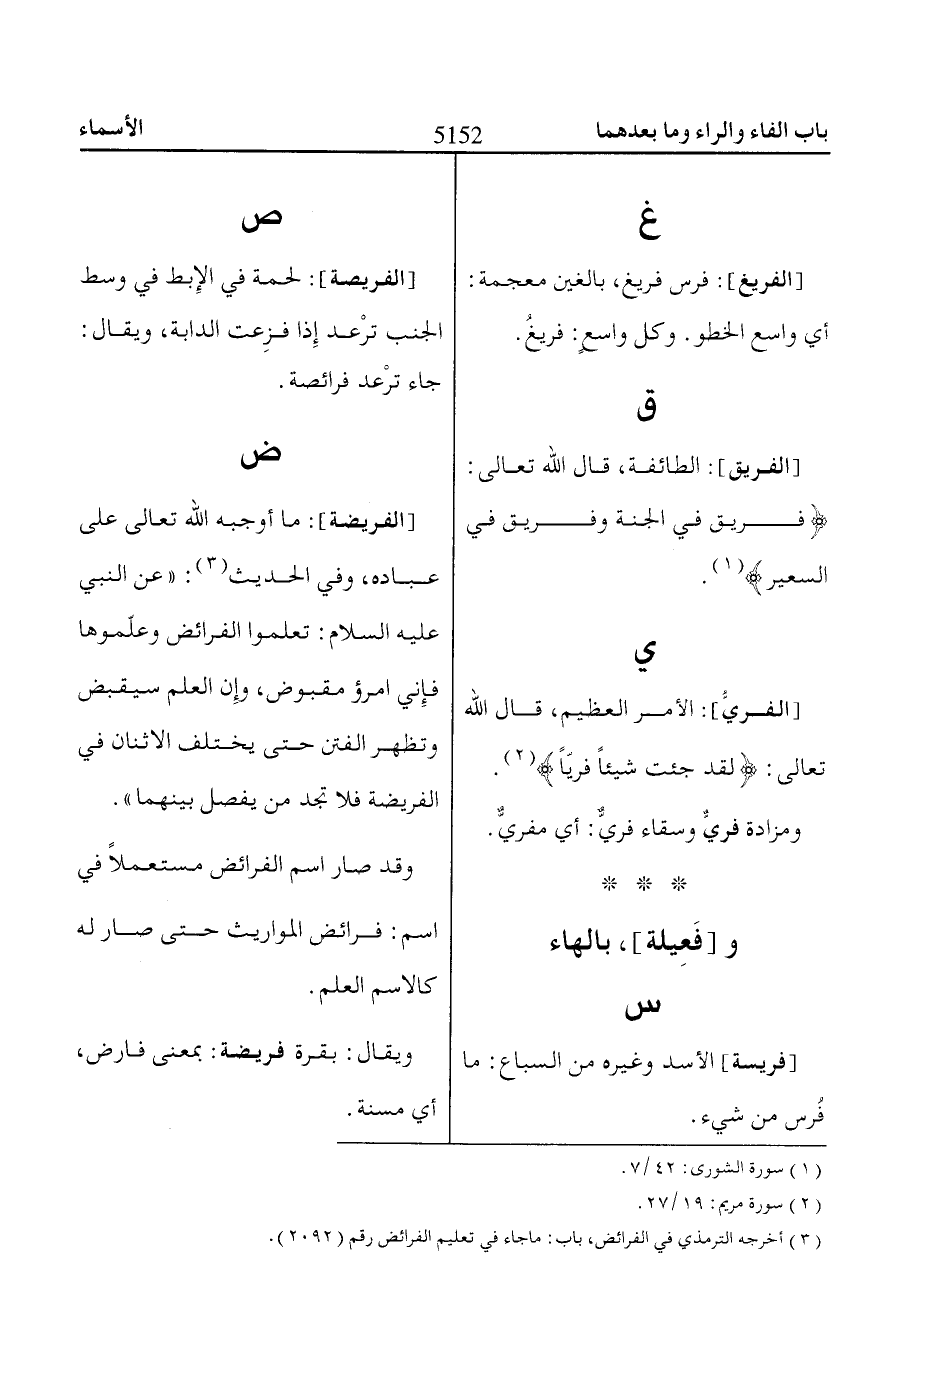 باب الفاء والراء وما بعدهما
5152
الأسماء
غ
[الفريغ]: فرس فريغ، بالغين معجمة:
أي واسع الخطو. وكل واسعٍ: فريغُ.
ق
[الفريق]: الطائفة، قال الله تعالى:
﴿فريق في الجنة وفريق في
السعير﴾(١).
ي
[الفريُّ]: الأمر العظيم، قال الله
تعالى: ﴿لقد جئت شيئاً فريّاً﴾(٢).
ومزادة فريٌّ وسقاء فريٌّ: أي مفريٌّ.
* * *
و [فَعِيلة]، بالهاء
س
[فريسة] الأسد وغيره من السباع: ما
فُرس من شيء.
ص
[الفريصة]: لحمة في الإبط في وسط
الجنب ترْعد إذا فزِعت الدابة، ويقال:
جاء ترْعد فرائصة.
ض
[الفريضة]: ما أوجبه الله تعالى على
عباده، وفي الحديث(٣): «عن النبي
عليه السلام: تعلموا الفرائض وعلّموها
فإني امرؤ مقبوض، وإن العلم سيقبض
وتظهر الفتن حتى يختلف الاثنان في
الفريضة فلا تجد من يفصل بينهما».
وقد صار اسم الفرائض مستعملاً في
اسم: فرائض المواريث حتى صار له
كالاسم العلم.
ويقال: بقرة فريضة: بمعنى فارض،
أي مسنة.
(١) سورة الشورى: ٤٢/٧.
(٢) سورة مريم: ١٩/٢٧.
(٣) أخرجه الترمذي في الفرائض، باب: ماجاء في تعليم الفرائض رقم (٢٠٩٢).